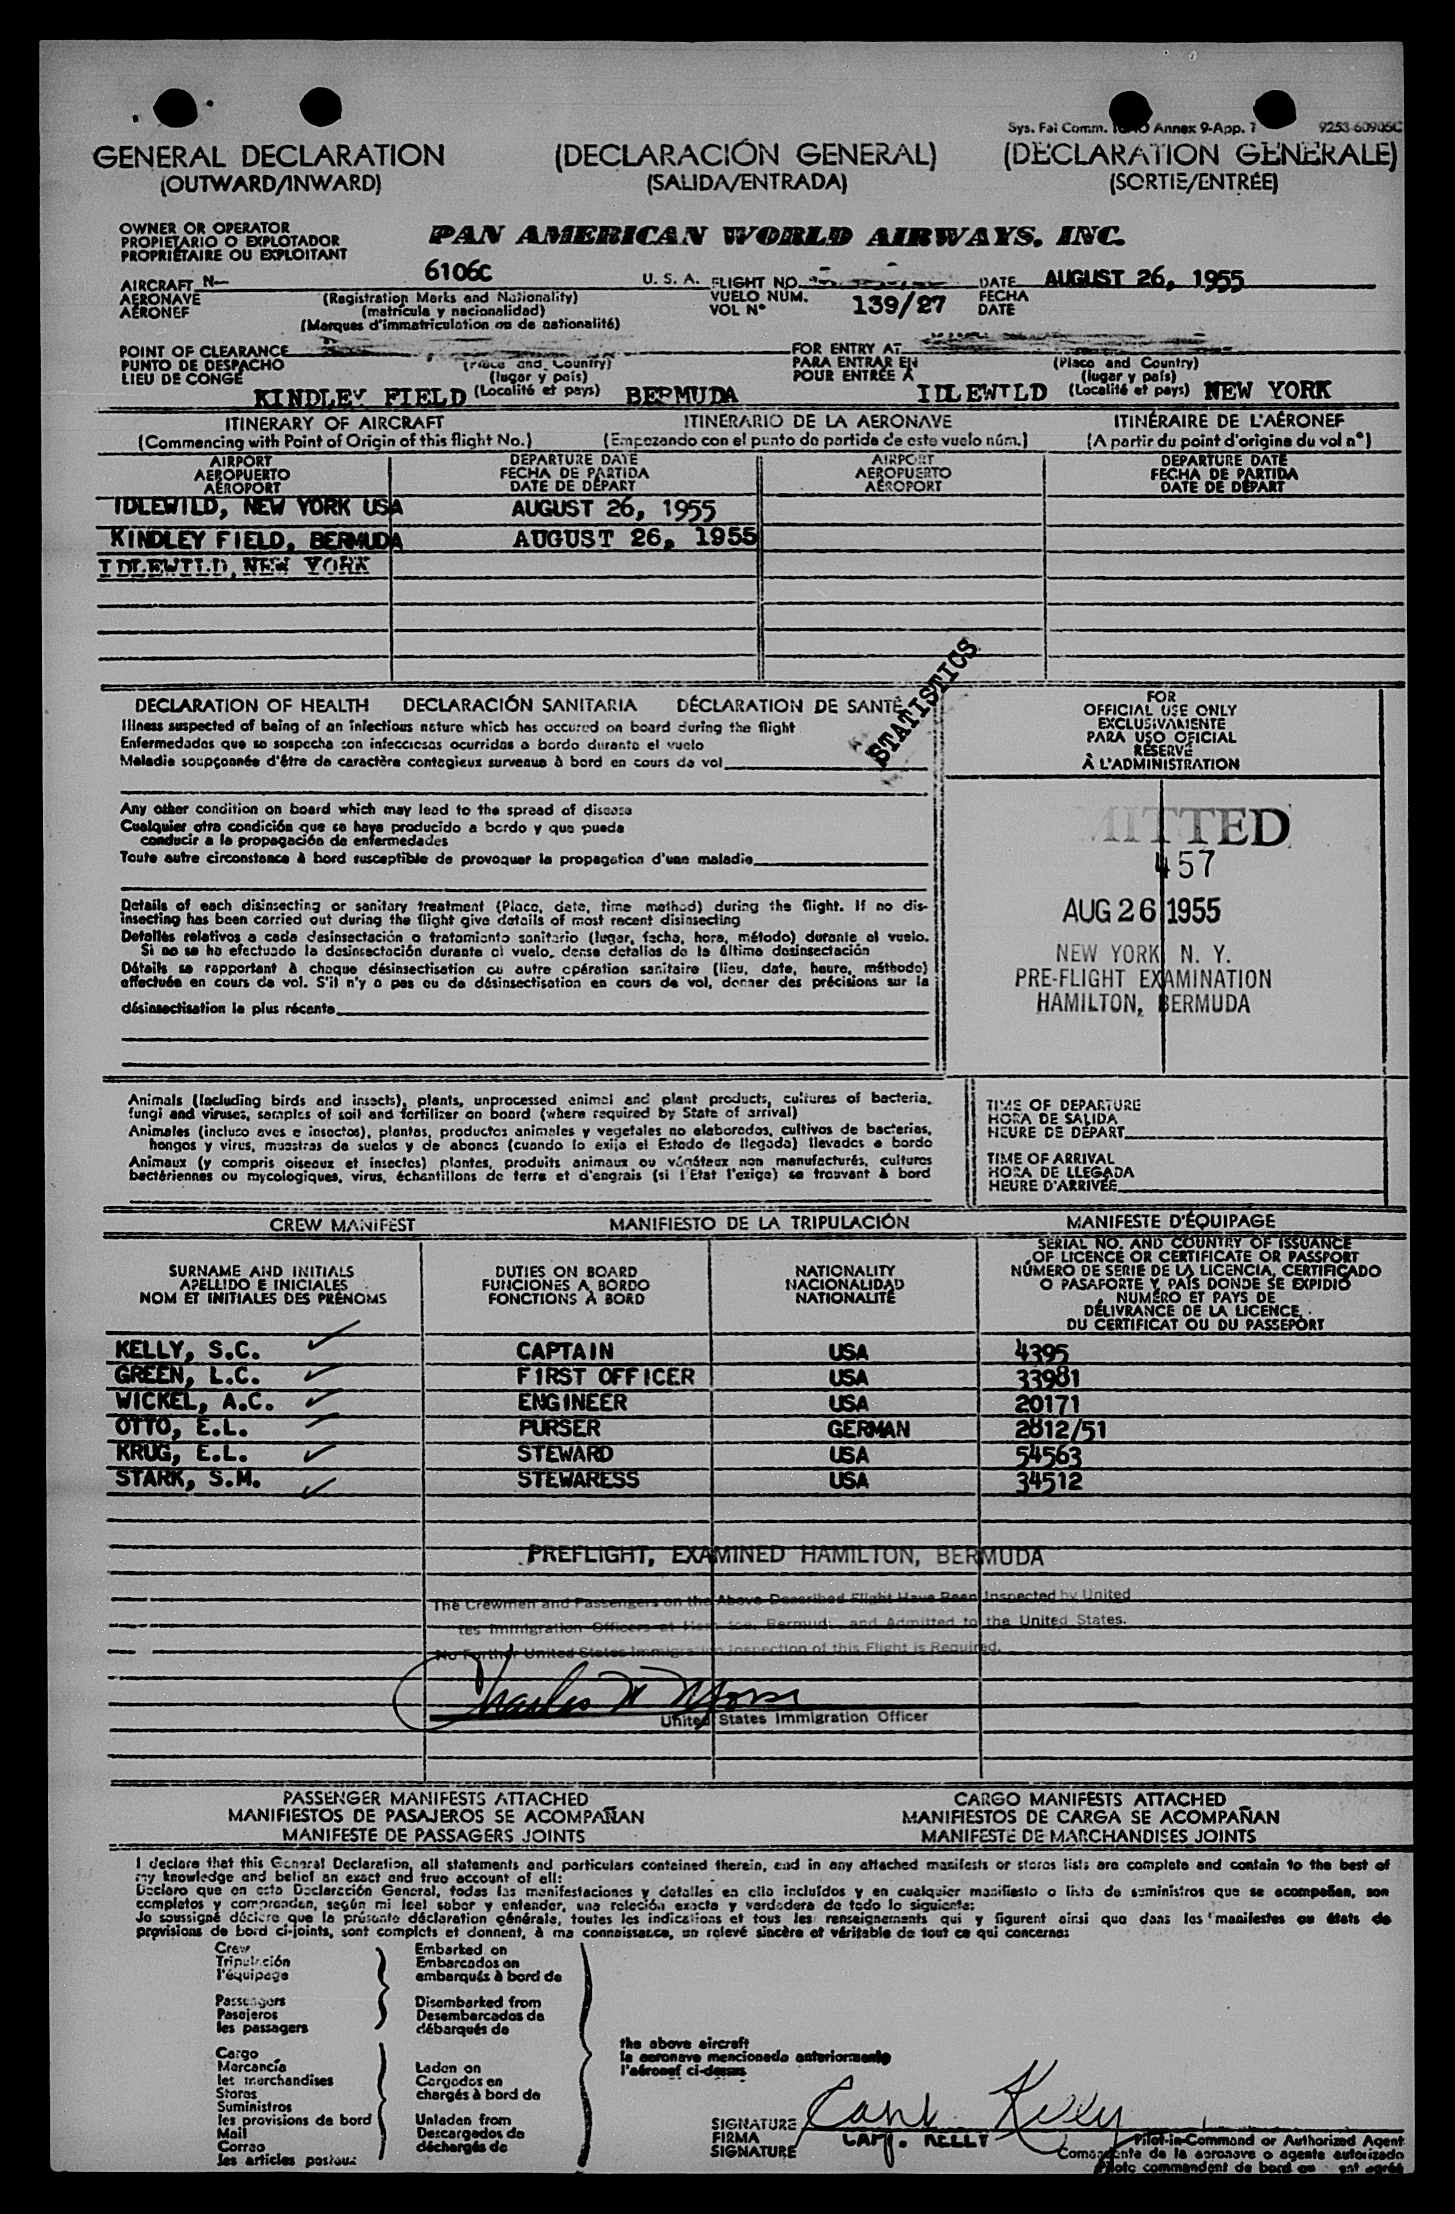 Sys. Fal Comm. Annex 9-App. 1 9253-60905C
GENERAL DECLARATION (DECLARACIÓN GENERAL) (DÉCLARATION GÉNÉRALE)
(OUTWARD/INWARD) (SALIDA/ENTRADA) (SORTIE/ENTRÉE)
OWNER OR OPERATOR
PROPIETARIO O EXPLOTADOR
PROPRIÉTAIRE OU EXPLOITANT
PAN AMERICAN WORLD AIRWAYS, INC.
AIRCRAFT N— 6106C U. S. A.
AERONAVE
AÉRONEF
(Registration Marks and Nationality)
(matrícula y nacionalidad)
(Marques d'immatriculation ou de nationalité)
FLIGHT NO.
VUELO NUM. 139/27
VOL Nº
DATE AUGUST 26, 1955
FECHA
DATE
POINT OF CLEARANCE
PUNTO DE DESPACHO
LIEU DE CONGÉ
(Place and Country)
(lugar y país)
KINDLEY FIELD (Localité et pays) BERMUDA
FOR ENTRY AT
PARA ENTRAR EN
POUR ENTRÉE À
(Place and Country)
(lugar y país)
IDLEWILD (Localité et pays) NEW YORK
ITINERARY OF AIRCRAFT ITINERARIO DE LA AERONAVE ITINÉRAIRE DE L'AÉRONEF
(Commencing with Point of Origin of this flight No.) (Empezando con el punto de partida de este vuelo núm.) (A partir du point d'origine du vol nº)
AIRPORT DEPARTURE DATE AIRPORT DEPARTURE DATE
AEROPUERTO FECHA DE PARTIDA AEROPUERTO FECHA DE PARTIDA
AÉROPORT DATE DE DÉPART AÉROPORT DATE DE DÉPART
IDLEWILD, NEW YORK USA AUGUST 26, 1955
KINDLEY FIELD, BERMUDA AUGUST 26, 1955
IDLEWILD, NEW YORK
STATISTICS
DECLARATION OF HEALTH DECLARACIÓN SANITARIA DÉCLARATION DE SANTÉ
Illness suspected of being of an infectious nature which has occured on board during the flight
Enfermedades que se sospecha son infecciosas ocurridas a bordo durante el vuelo
Maladie soupçonnée d'être de caractère contagieux survenue à bord en cours de vol
Any other condition on board which may lead to the spread of disease
Cualquier otra condición que se haya producido a bordo y que pueda
conducir a la propagación de enfermedades
Toute autre circonstance à bord susceptible de provoquer la propagation d'une maladie
Details of each disinsecting or sanitary treatment (Place, date, time method) during the flight. If no dis-
insecting has been carried out during the flight give details of most recent disinsecting
Detalles relativos a cada desinsectación o tratamiento sanitario (lugar, fecha, hora, método) durante el vuelo.
Si no se ha efectuado la desinsectación durante el vuelo, dense detalles de la última desinsectación
Détails se rapportant à chaque désinsectisation ou autre opération sanitaire (lieu, date, heure, méthode)
effectuée en cours de vol. S'il n'y a pas eu de désinsectisation en cours de vol, donner des précisions sur la
désinsectisation la plus récente
FOR
OFFICIAL USE ONLY
EXCLUSIVAMENTE
PARA USO OFICIAL
RÉSERVÉ
À L'ADMINISTRATION
MITTED
457
AUG 26 1955
NEW YORK, N. Y.
PRE-FLIGHT EXAMINATION
HAMILTON, BERMUDA
Animals (including birds and insects), plants, unprocessed animal and plant products, cultures of bacteria,
fungi and viruses, samples of soil and fertilizer on board (where required by State of arrival)
Animales (incluso aves e insectos), plantas, productos animales y vegetales no elaborados, cultivos de bacterias,
hongos y virus, muestras de suelos y de abonos (cuando lo exija el Estado de llegada) llevados a bordo
Animaux (y compris oiseaux et insectes) plantes, produits animaux ou végétaux non manufacturés, cultures
bactériennes ou mycologiques, virus, échantillons de terre et d'engrais (si l'Etat l'exige) se trouvant à bord
TIME OF DEPARTURE
HORA DE SALIDA
HEURE DE DÉPART
TIME OF ARRIVAL
HORA DE LLEGADA
HEURE D'ARRIVÉE
CREW MANIFEST MANIFIESTO DE LA TRIPULACIÓN MANIFESTE D'ÉQUIPAGE
SURNAME AND INITIALS
APELLIDO E INICIALES
NOM ET INITIALES DES PRÉNOMS
DUTIES ON BOARD
FUNCIONES A BORDO
FONCTIONS À BORD
NATIONALITY
NACIONALIDAD
NATIONALITÉ
SERIAL NO. AND COUNTRY OF ISSUANCE
OF LICENCE OR CERTIFICATE OR PASSPORT
NÚMERO DE SERIE DE LA LICENCIA, CERTIFICADO
O PASAPORTE Y PAÍS DONDE SE EXPIDIÓ
NUMÉRO ET PAYS DE
DÉLIVRANCE DE LA LICENCE,
DU CERTIFICAT OU DU PASSEPORT
KELLY, S.C. CAPTAIN USA 4395
GREEN, L.C. FIRST OFFICER USA 33981
WICKEL, A.C. ENGINEER USA 20171
OTTO, E.L. PURSER GERMAN 2812/51
KRUG, E.L. STEWARD USA 54563
STARK, S.M. STEWARESS USA 34512
PREFLIGHT, EXAMINED HAMILTON, BERMUDA
The Crewmen and Passengers on the Above Described Flight Have Been Inspected by United
tes Immigration Officers at Bermud and Admitted to the United States.
No Further United States Immigration Inspection of this Flight is Required.
Charles W Morse
United States Immigration Officer
PASSENGER MANIFESTS ATTACHED CARGO MANIFESTS ATTACHED
MANIFIESTOS DE PASAJEROS SE ACOMPAÑAN MANIFIESTOS DE CARGA SE ACOMPAÑAN
MANIFESTE DE PASSAGERS JOINTS MANIFESTE DE MARCHANDISES JOINTS
I declare that this General Declaration, all statements and particulars contained therein, and in any attached manifests or stores lists are complete and contain to the best of
my knowledge and belief an exact and true account of all:
Declaro que en esta Declaración General, todas las manifestaciones y detalles en ella incluídos y en cualquier manifiesto o lista de suministros que se acompañen, son
completos y comprenden, según mi leal saber y entender, una relación exacta y verdadera de todo lo siguiente:
Je soussigné déclare que la présente déclaration générale, toutes les indications et tous les renseignements qui y figurent ainsi que dans les manifestes ou états de
provisions de bord ci-joints, sont complets et donnent, à ma connaissance, un relevé sincère et véritable de tout ce qui concerne:
Crew
Tripulación
l'équipage
Passengers
Pasajeros
les passagers
Embarked on
Embarcados en
embarqués à bord de
Disembarked from
Desembarcados de
débarqués de
Cargo
Mercancía
les marchandises
Stores
Suministros
les provisions de bord
Mail
Correo
les articles postaux
Laden on
Cargados en
chargés à bord de
Unladen from
Descargados de
déchargés de
the above aircraft
la aeronave mencionada anteriormente
l'aéronef ci-dessus
SIGNATURE Capt. Kelly
FIRMA CAPT. KELLY
SIGNATURE
Pilot-in-Command or Authorized Agent
Comandante de la aeronave o agente autorizado
Pilote commandant de bord ou agréé